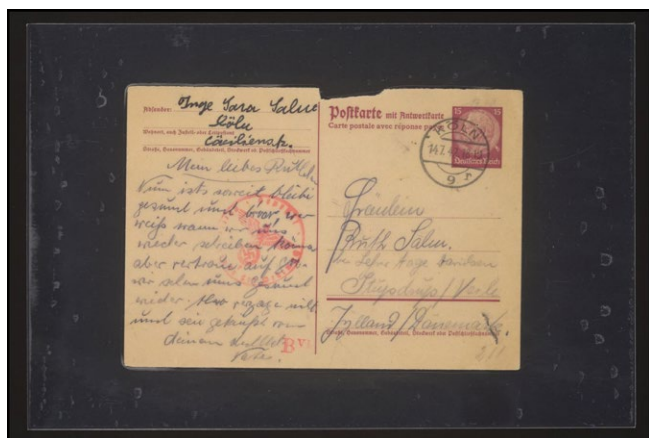 Absender: Inge Sara Salm
Köln
Wohnort, auch Zustell- oder Leitpostamt
Cäcilienstr.
Straße, Hausnummer, Gebäudeteil, Stockwerk od. Postschließfachnummer
Mein liebes Ruthlein
Nun ists soweit bleibe
gesund und brav, wer
weiß wann wir uns
wieder schreiben können
aber vertraue auf Gott
wir sehen uns gesund
wieder. Also verzage nicht
und sei geküßt von
deinem
Vater.
Postkarte mit Antwortkarte
Carte postale avec réponse
15 15
Deutsches Reich
KÖLN
14.7.
9
Fräulein
Ruth Salm.
Vejle
Jylland/Dänemark.
Straße, Hausnummer, Gebäudeteil, Stockwerk oder Postschließfachnummer